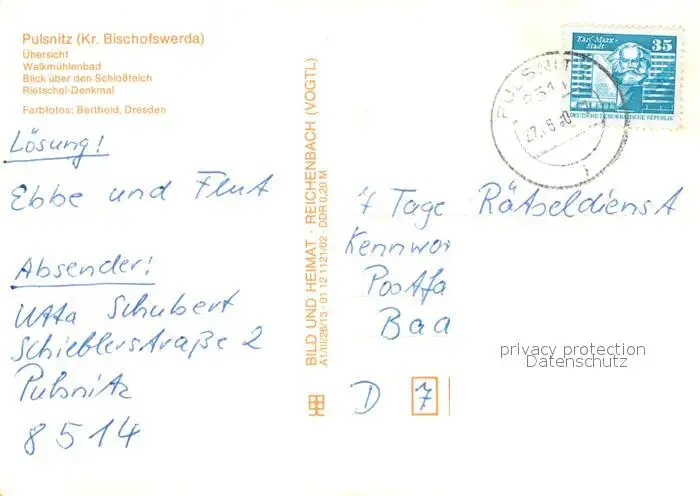 Pulsnitz (Kr. Bischofswerda)
Übersicht
Walkmühlenbad
Blick über den Schloßteich
Rietschel-Denkmal
Farbfotos: Berthold, Dresden
Lösung!
Ebbe und Flut
Absender!
Utta Schubert
Schieblerstraße 2
Pulsnitz
8514
BILD UND HEIMAT · REICHENBACH (VOGTL)
A1/III/26/13 · 01 12 1121/02 · DDR 0,20 M
Karl-Marx-Stadt
35
DEUTSCHE DEMOKRATISCHE REPUBLIK
PULSNITZ
7 Tage Rätseldienst
Kennwor
Postfa
Baa
D 7
privacy protection
Datenschutz